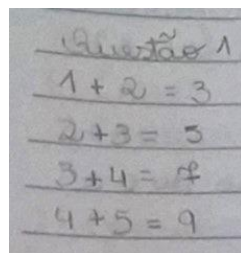 Questão 1
1 + 2 = 3
2 + 3 = 5
3 + 4 = 7
4 + 5 = 9